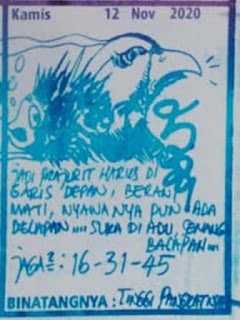 Kamis 12 Nov 2020
JADI PRAJURIT HARUS DI
GARIS DEPAN, BERANI
MATI, NYAWANYA PUN ADA
DELAPAN.... SUKA DI ADU, SENANG
BALAPAN....
JAGA2 : 16-31-45
BINATANGNYA : TINGGI PANGKATNYA